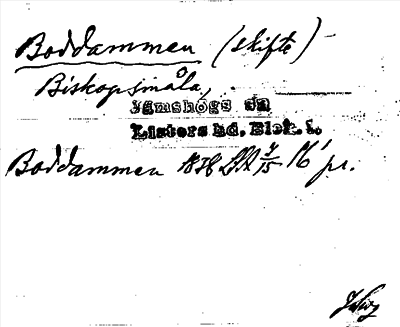 Boddammen (skifte)
Biskopsmåla,
Jämshögs sn
Listers hd, Blek. l.
Boddammen 1878